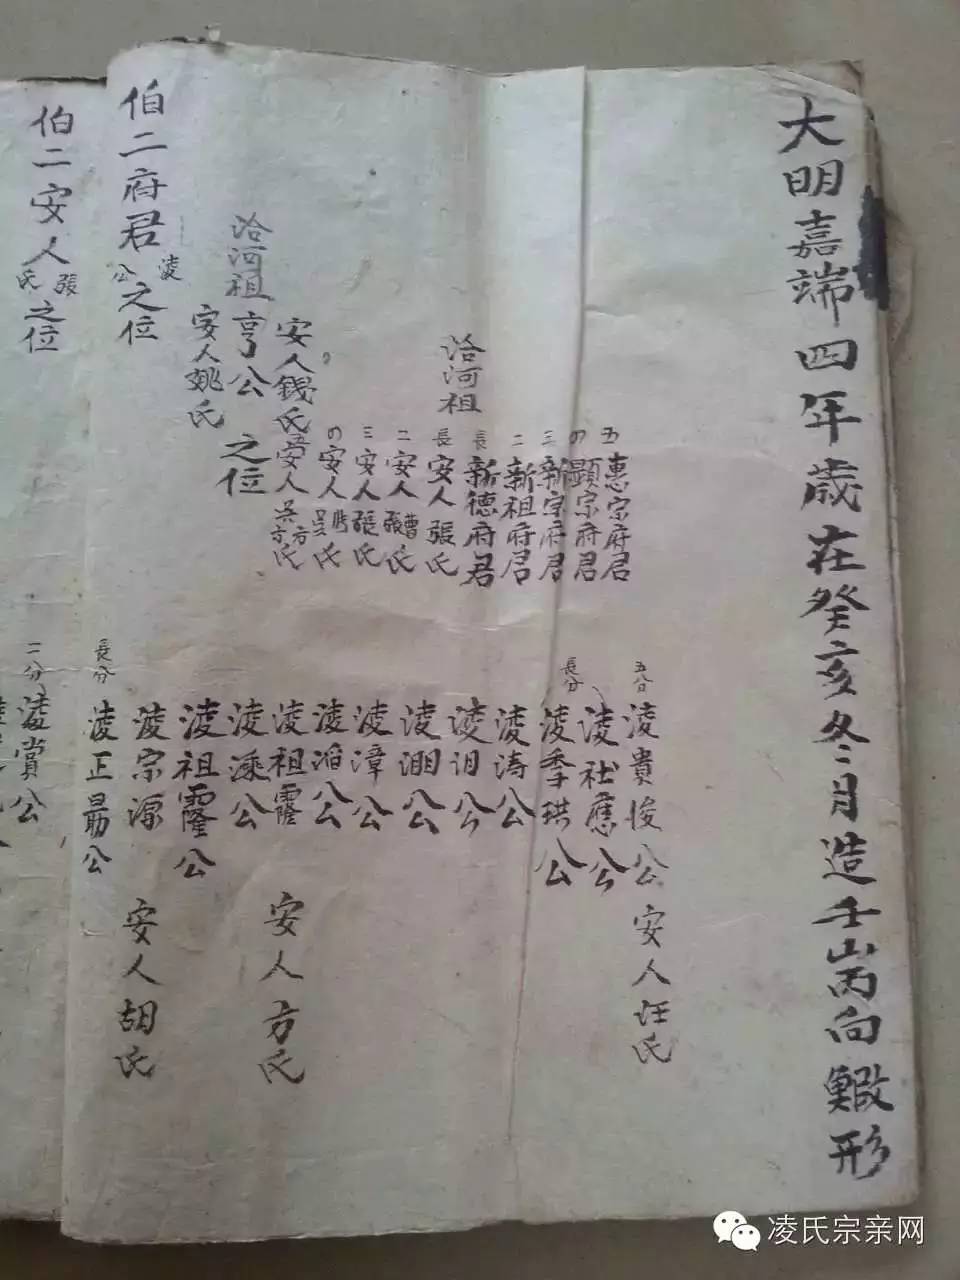 大明嘉端四年歲在癸亥冬月造壬山丙向鰕形
五 惠宗府君
の 顯宗府君
三 新宗府君
二 新祖府君
長 新德府君
洽河祖
長 安人張氏
二 安人曹張氏
三 安人張氏
の 安人吳氏
安人錢氏
五 安人吳方氏
洽河祖
亨公
之位
安人姚氏
五分 淩貴俊公 安人汪氏
淩社應公
長分 淩季珙公
淩濤公
淩公
淩淵公
淩漳公
淩滔公
淩祖靄 安人方氏
淩溗公
淩祖霳公
淩宗源 安人胡氏
長分 淩正勗公
二分 淩賞公
伯二府君淩公之位
伯二安人張氏之位
凌氏宗亲网